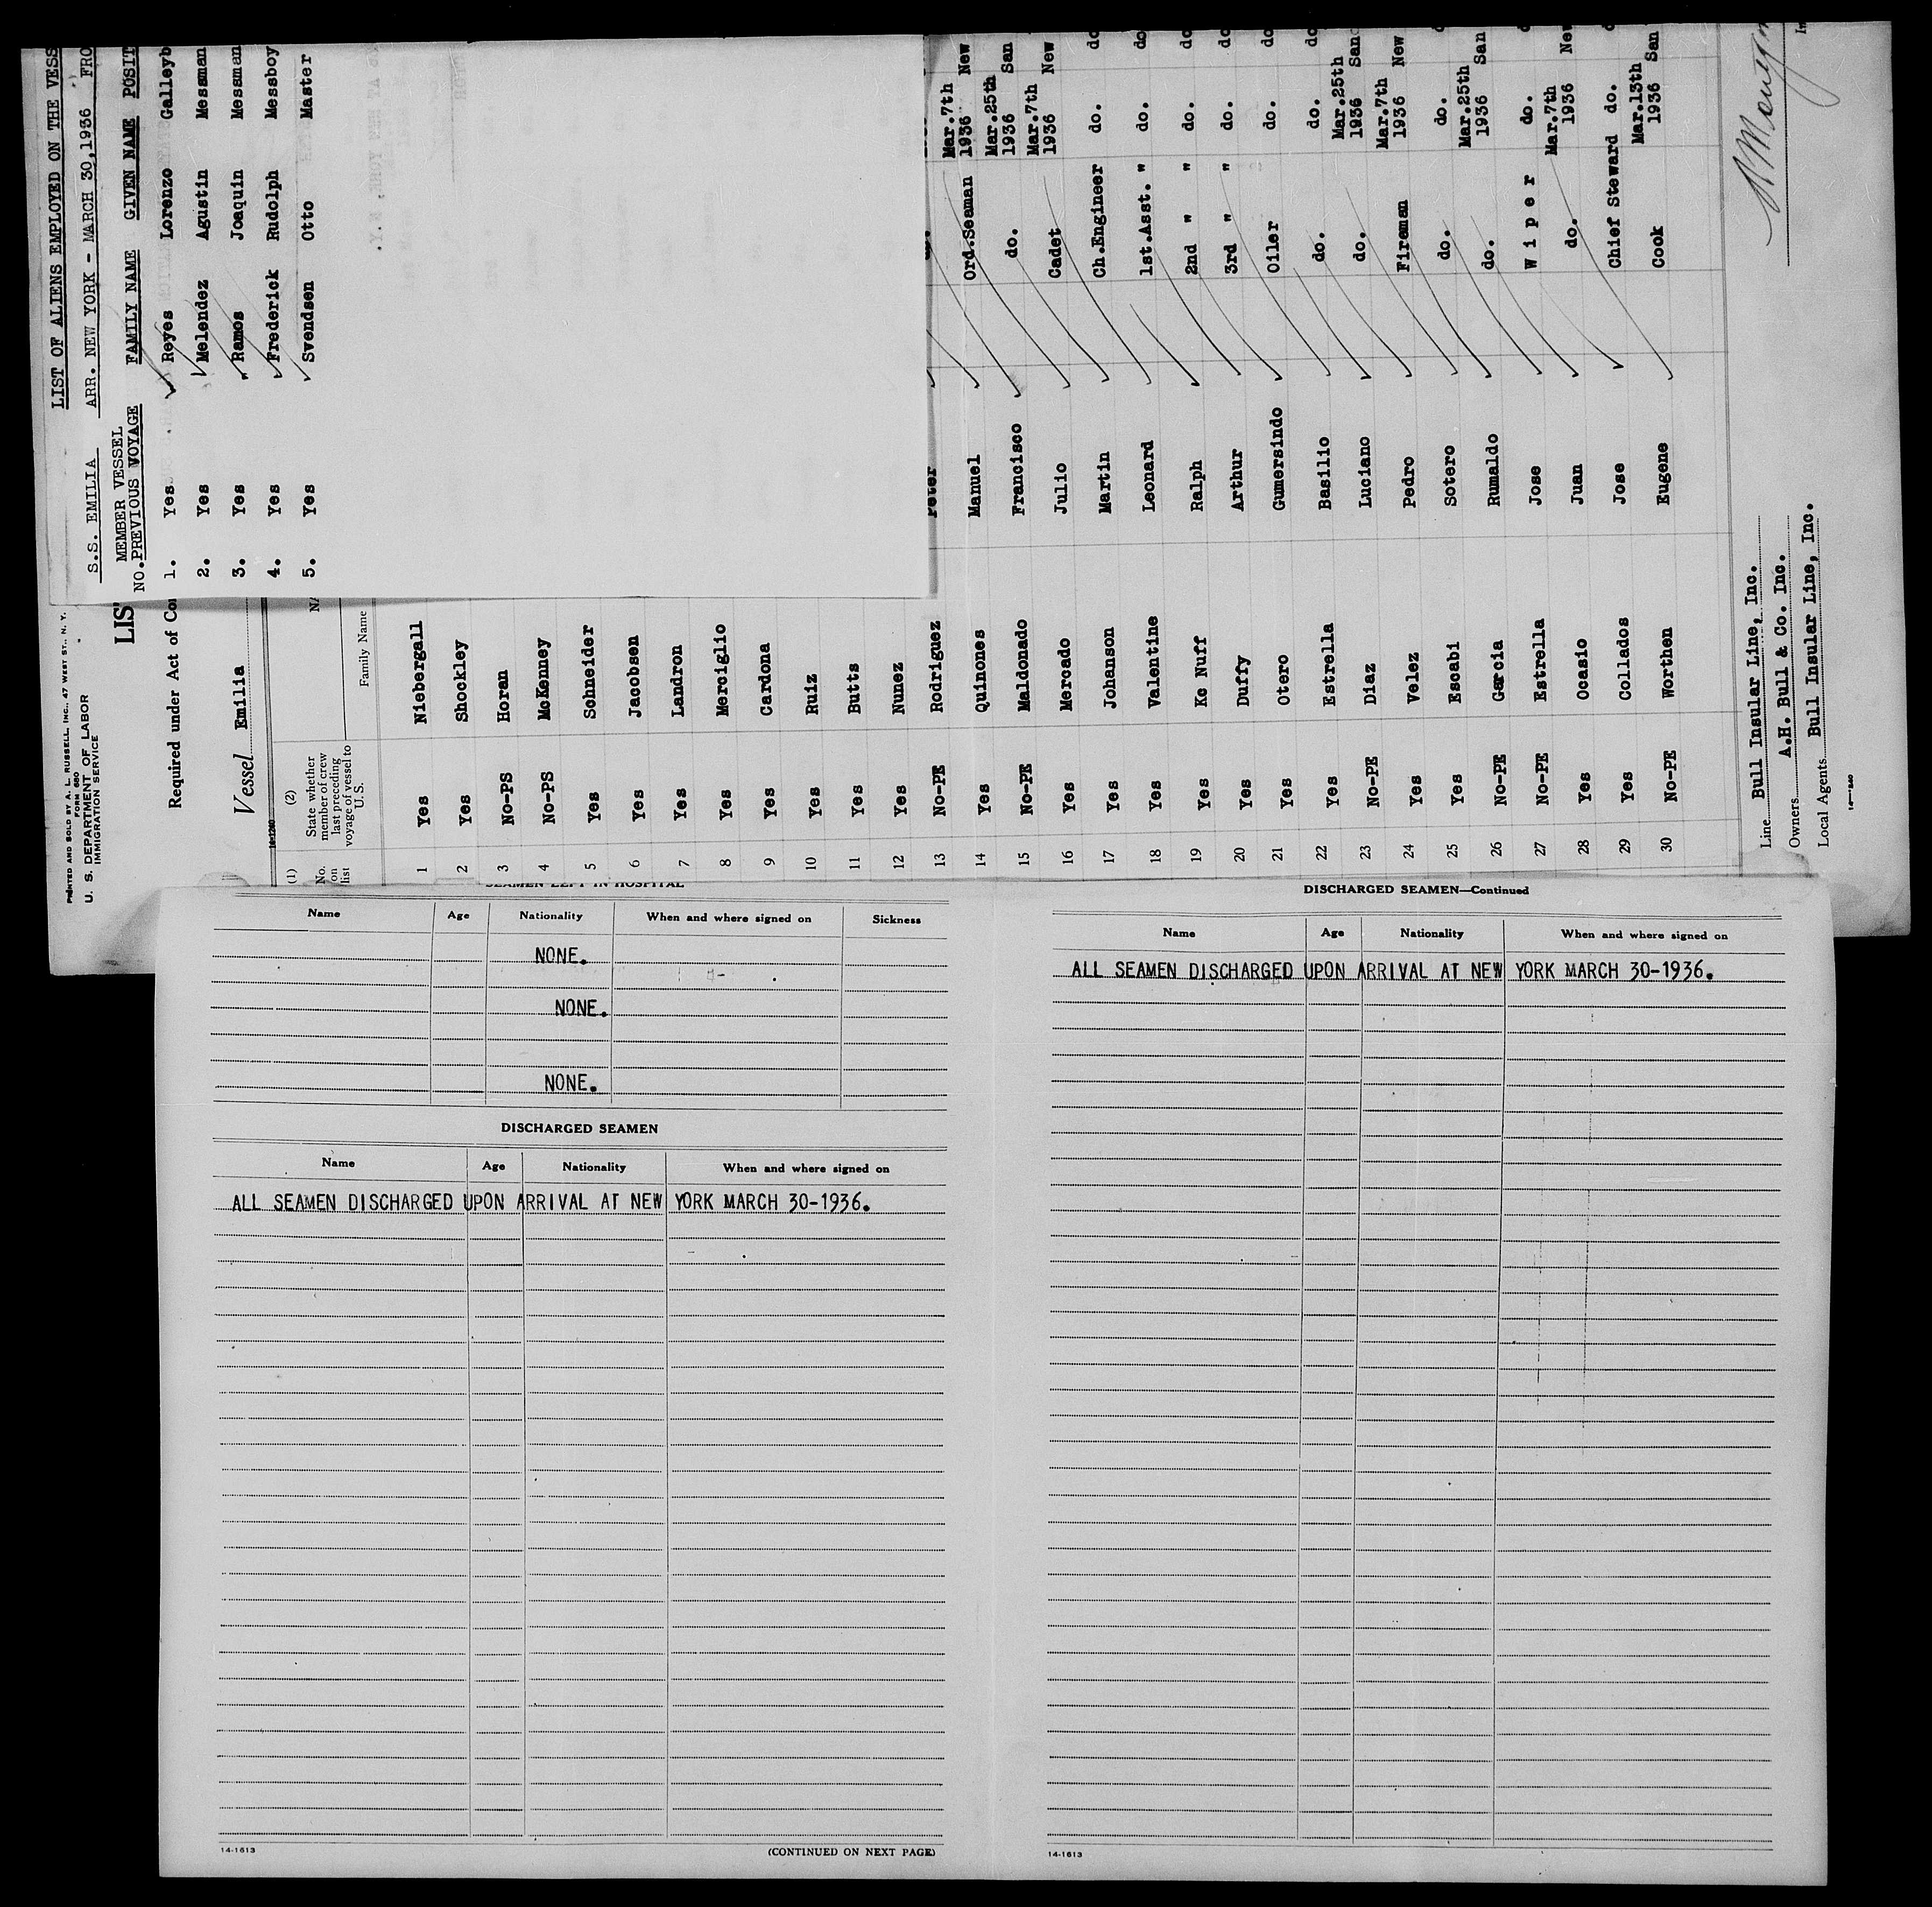 LIST OF ALIENS EMPLOYED ON THE VESS
S.S. EMILIA ARR. NEW YORK - MARCH 30,1936 FRO
MEMBER VESSEL
NO. PREVIOUS VOYAGE FAMILY NAME GIVEN NAME POSIT
1. Yes Reyes Lorenzo Galleyb
2. Yes Melendez Agustin Messman
3. Yes Ramos Joaquin Messman
4. Yes Frederick Rudolph Messboy
5. Yes Svendsen Otto Master
PRINTED AND SOLD BY A. L. RUSSELL, INC., 47 WEST ST., N. Y.
FORM 680
U. S. DEPARTMENT OF LABOR
IMMIGRATION SERVICE
LIS
Required under Act of Co
Vessel Emilia
14-1240
(1) (2)
No. on list
State whether member of crew last preceding voyage of vessel to U.S.
NA
Family Name
1 Yes Niebergall
2 Yes Shockley
3 No-PS Horan
4 No-PS McKenney
5 Yes Schneider
6 Yes Jacobsen
7 Yes Landron
8 Yes Merciglio
9 Yes Cardona
10 Yes Ruiz
11 Yes Butts
12 Yes Nunez
13 No-PE Rodriguez Peter
14 Yes Quinones Manuel Ord.Seaman Mar.7th 1936 New
15 No-PE Maldonado Francisco do. Mar.25th 1936 San
16 Yes Mercado Julio Cadet Mar.7th 1936 New
17 Yes Johanson Martin Ch.Engineer do. do
18 Yes Valentine Leonard 1st.Asst. " do. do
19 Yes Kc Nuff Ralph 2nd " " do. do
20 Yes Duffy Arthur 3rd " " do. do
21 Yes Otero Gumersindo Oiler do. do
22 Yes Estrella Basilio do. do. do
23 No-PE Diaz Luciano do. Mar.25th 1936 San
24 Yes Velez Pedro Fireman Mar.7th 1936 New
25 Yes Escabi Sotero do. do.
26 No-PE Garcia Rumaldo do. Mar.25th 1936 San
27 No-PE Estrella Jose Wiper do.
28 Yes Ocasio Juan do. Mar.7th 1936 New
29 Yes Collados Jose Chief Steward do.
30 No-PE Worthen Eugene Cook Mar.13th 1936 San
Line Bull Insular Line, Inc.
Owners A.H. Bull & Co. Inc.
Local Agents Bull Insular Line, Inc.
SEAMEN LEFT IN HOSPITAL
Name Age Nationality When and where signed on Sickness
NONE.
NONE.
NONE.
DISCHARGED SEAMEN
Name Age Nationality When and where signed on
ALL SEAMEN DISCHARGED UPON ARRIVAL AT NEW YORK MARCH 30-1936.
14-1613
(CONTINUED ON NEXT PAGE)
DISCHARGED SEAMEN—Continued
Name Age Nationality When and where signed on
ALL SEAMEN DISCHARGED UPON ARRIVAL AT NEW YORK MARCH 30-1936.
14-1613